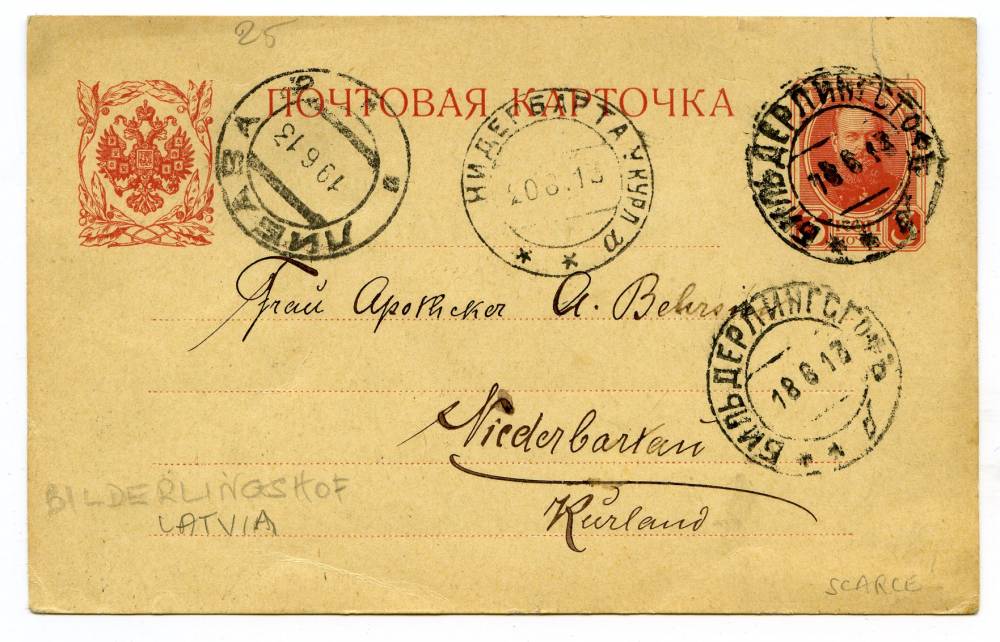 25
ПОЧТОВАЯ КАРТОЧКА
ЛИБАВА 19.6.13
НИДЕРБАРТАУ КУРЛ 20.6.13
БИЛЬДЕРЛИНГСГОФЪ 18 6 13
Frau Apotheker A.
БИЛЬДЕРЛИНГСГОФЪ 18 6 13
Niederbartau
Kurland
BILDERLINGSHOF
LATVIA
SCARCE